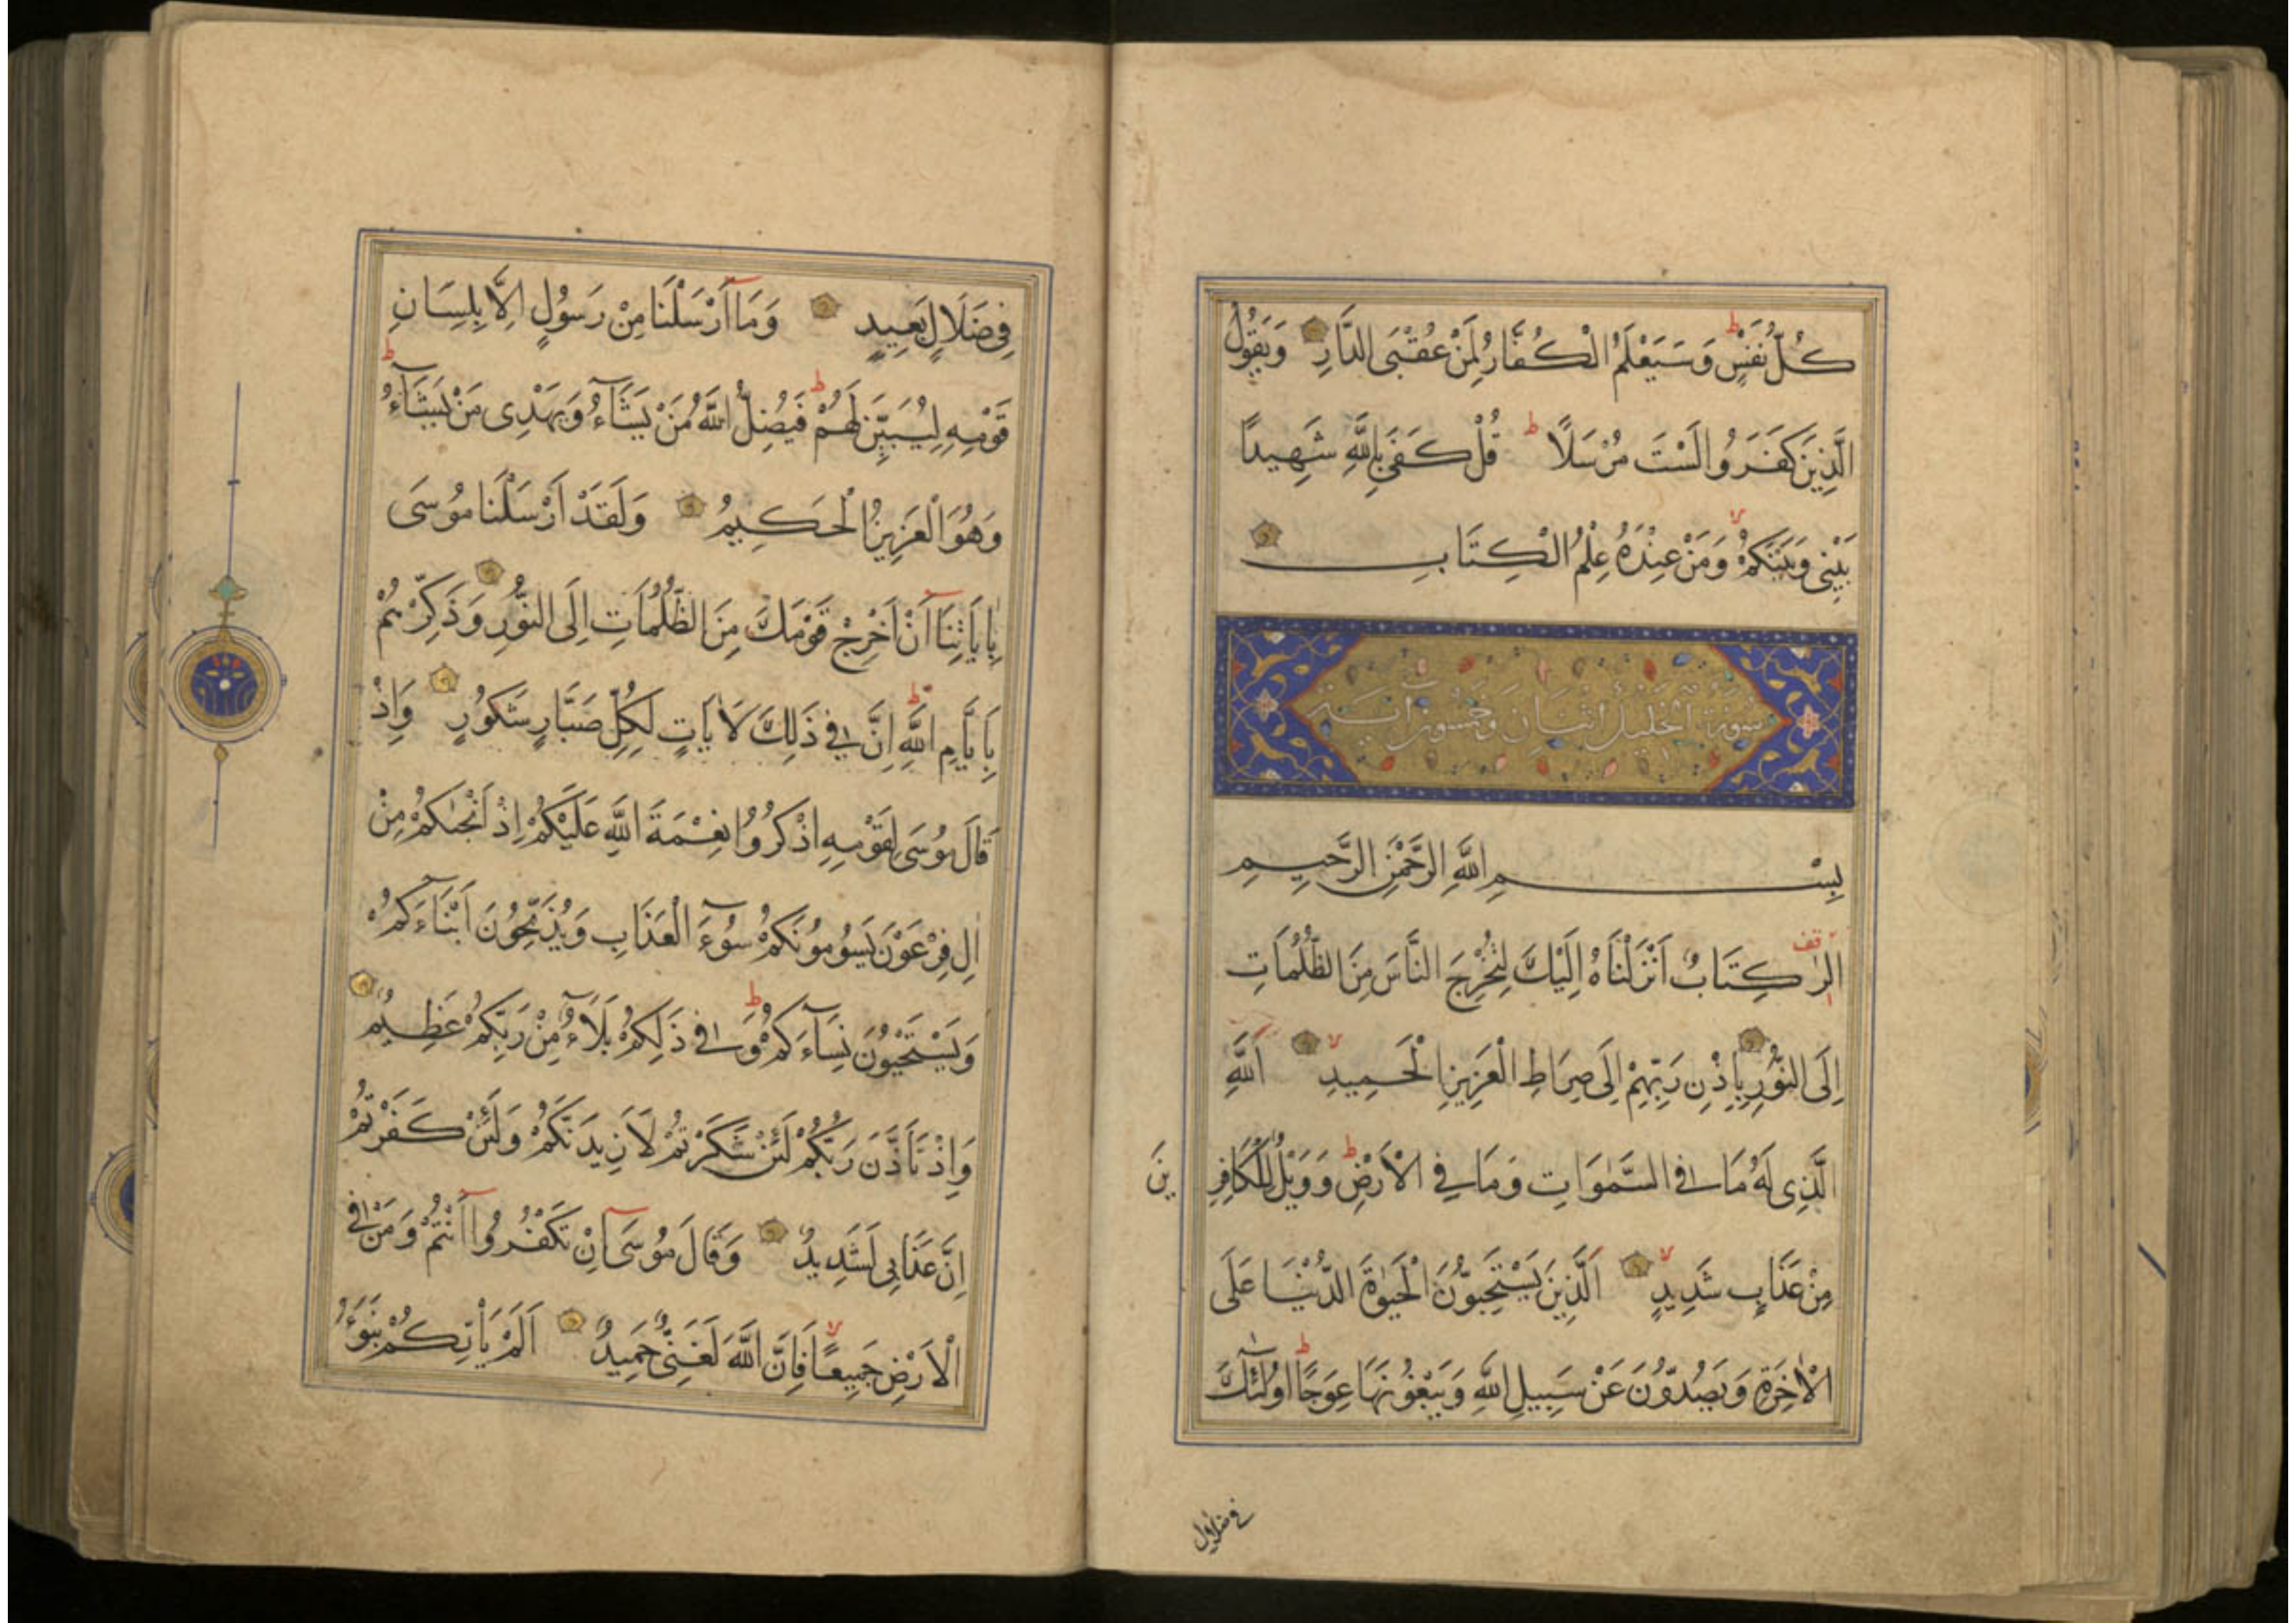 كُلُّ نَفْسٍ وَسَيَعْلَمُ الْكُفَّارُ لِمَنْ عُقْبَى الدَّارِ وَيَقُولُ
الَّذِينَ كَفَرُوا لَسْتَ مُرْسَلًا ط قُلْ كَفَى بِاللَّهِ شَهِيدًا
بَيْنِي وَبَيْنَكُمْ وَمَنْ عِنْدَهُ عِلْمُ الْكِتَابِ
سورة الخليل اثنان وخمسون آية
بِسْمِ اللَّهِ الرَّحْمَنِ الرَّحِيمِ
الرٰ قف كِتَابٌ أَنْزَلْنَاهُ إِلَيْكَ لِتُخْرِجَ النَّاسَ مِنَ الظُّلُمَاتِ
إِلَى النُّورِ بِإِذْنِ رَبِّهِمْ إِلَى صِرَاطِ الْعَزِيزِ الْحَمِيدِ لا اَللَّهِ
الَّذِي لَهُ مَا فِي السَّمٰوَاتِ وَمَا فِي الْأَرْضِ ط وَوَيْلٌ لِلْكَافِرِينَ
مِنْ عَذَابٍ شَدِيدٍ لا اَلَّذِينَ يَسْتَحِبُّونَ الْحَيٰوةَ الدُّنْيَا عَلَى
الْاٰخِرَةِ وَيَصُدُّونَ عَنْ سَبِيلِ اللَّهِ وَيَبْغُونَهَا عِوَجًا ط اُولٰئِكَ
في ضلال
فِي ضَلَالٍ بَعِيدٍ وَمَا اَرْسَلْنَا مِنْ رَسُولٍ اِلَّا بِلِسَانِ
قَوْمِهِ لِيُبَيِّنَ لَهُمْ ط فَيُضِلُّ اللَّهُ مَنْ يَشَاءُ وَيَهْدِي مَنْ يَشَاءُ ط
وَهُوَ الْعَزِيزُ الْحَكِيمُ وَلَقَدْ اَرْسَلْنَا مُوسَى
بِاٰيَاتِنَا اَنْ اَخْرِجْ قَوْمَكَ مِنَ الظُّلُمَاتِ اِلَى النُّورِ وَذَكِّرْهُمْ
بِاَيَّامِ اللَّهِ ط اِنَّ فِي ذَلِكَ لَاٰيَاتٍ لِكُلِّ صَبَّارٍ شَكُورٍ وَاِذْ
قَالَ مُوسَى لِقَوْمِهِ اذْكُرُوا نِعْمَةَ اللَّهِ عَلَيْكُمْ اِذْ اَنْجٰىكُمْ مِنْ
اٰلِ فِرْعَوْنَ يَسُومُونَكُمْ سُوءَ الْعَذَابِ وَيُذَبِّحُونَ اَبْنَاءَكُمْ
وَيَسْتَحْيُونَ نِسَاءَكُمْ ط وَفِي ذَلِكُمْ بَلَاءٌ مِنْ رَبِّكُمْ عَظِيمٌ
وَاِذْ تَاَذَّنَ رَبُّكُمْ لَئِنْ شَكَرْتُمْ لَاَزِيدَنَّكُمْ وَلَئِنْ كَفَرْتُمْ
اِنَّ عَذَابِي لَشَدِيدٌ وَقَالَ مُوسَى اِنْ تَكْفُرُوا اَنْتُمْ وَمَنْ فِي
الْاَرْضِ جَمِيعًا لا فَاِنَّ اللَّهَ لَغَنِيٌّ حَمِيدٌ اَلَمْ يَاْتِكُمْ نَبَؤُا